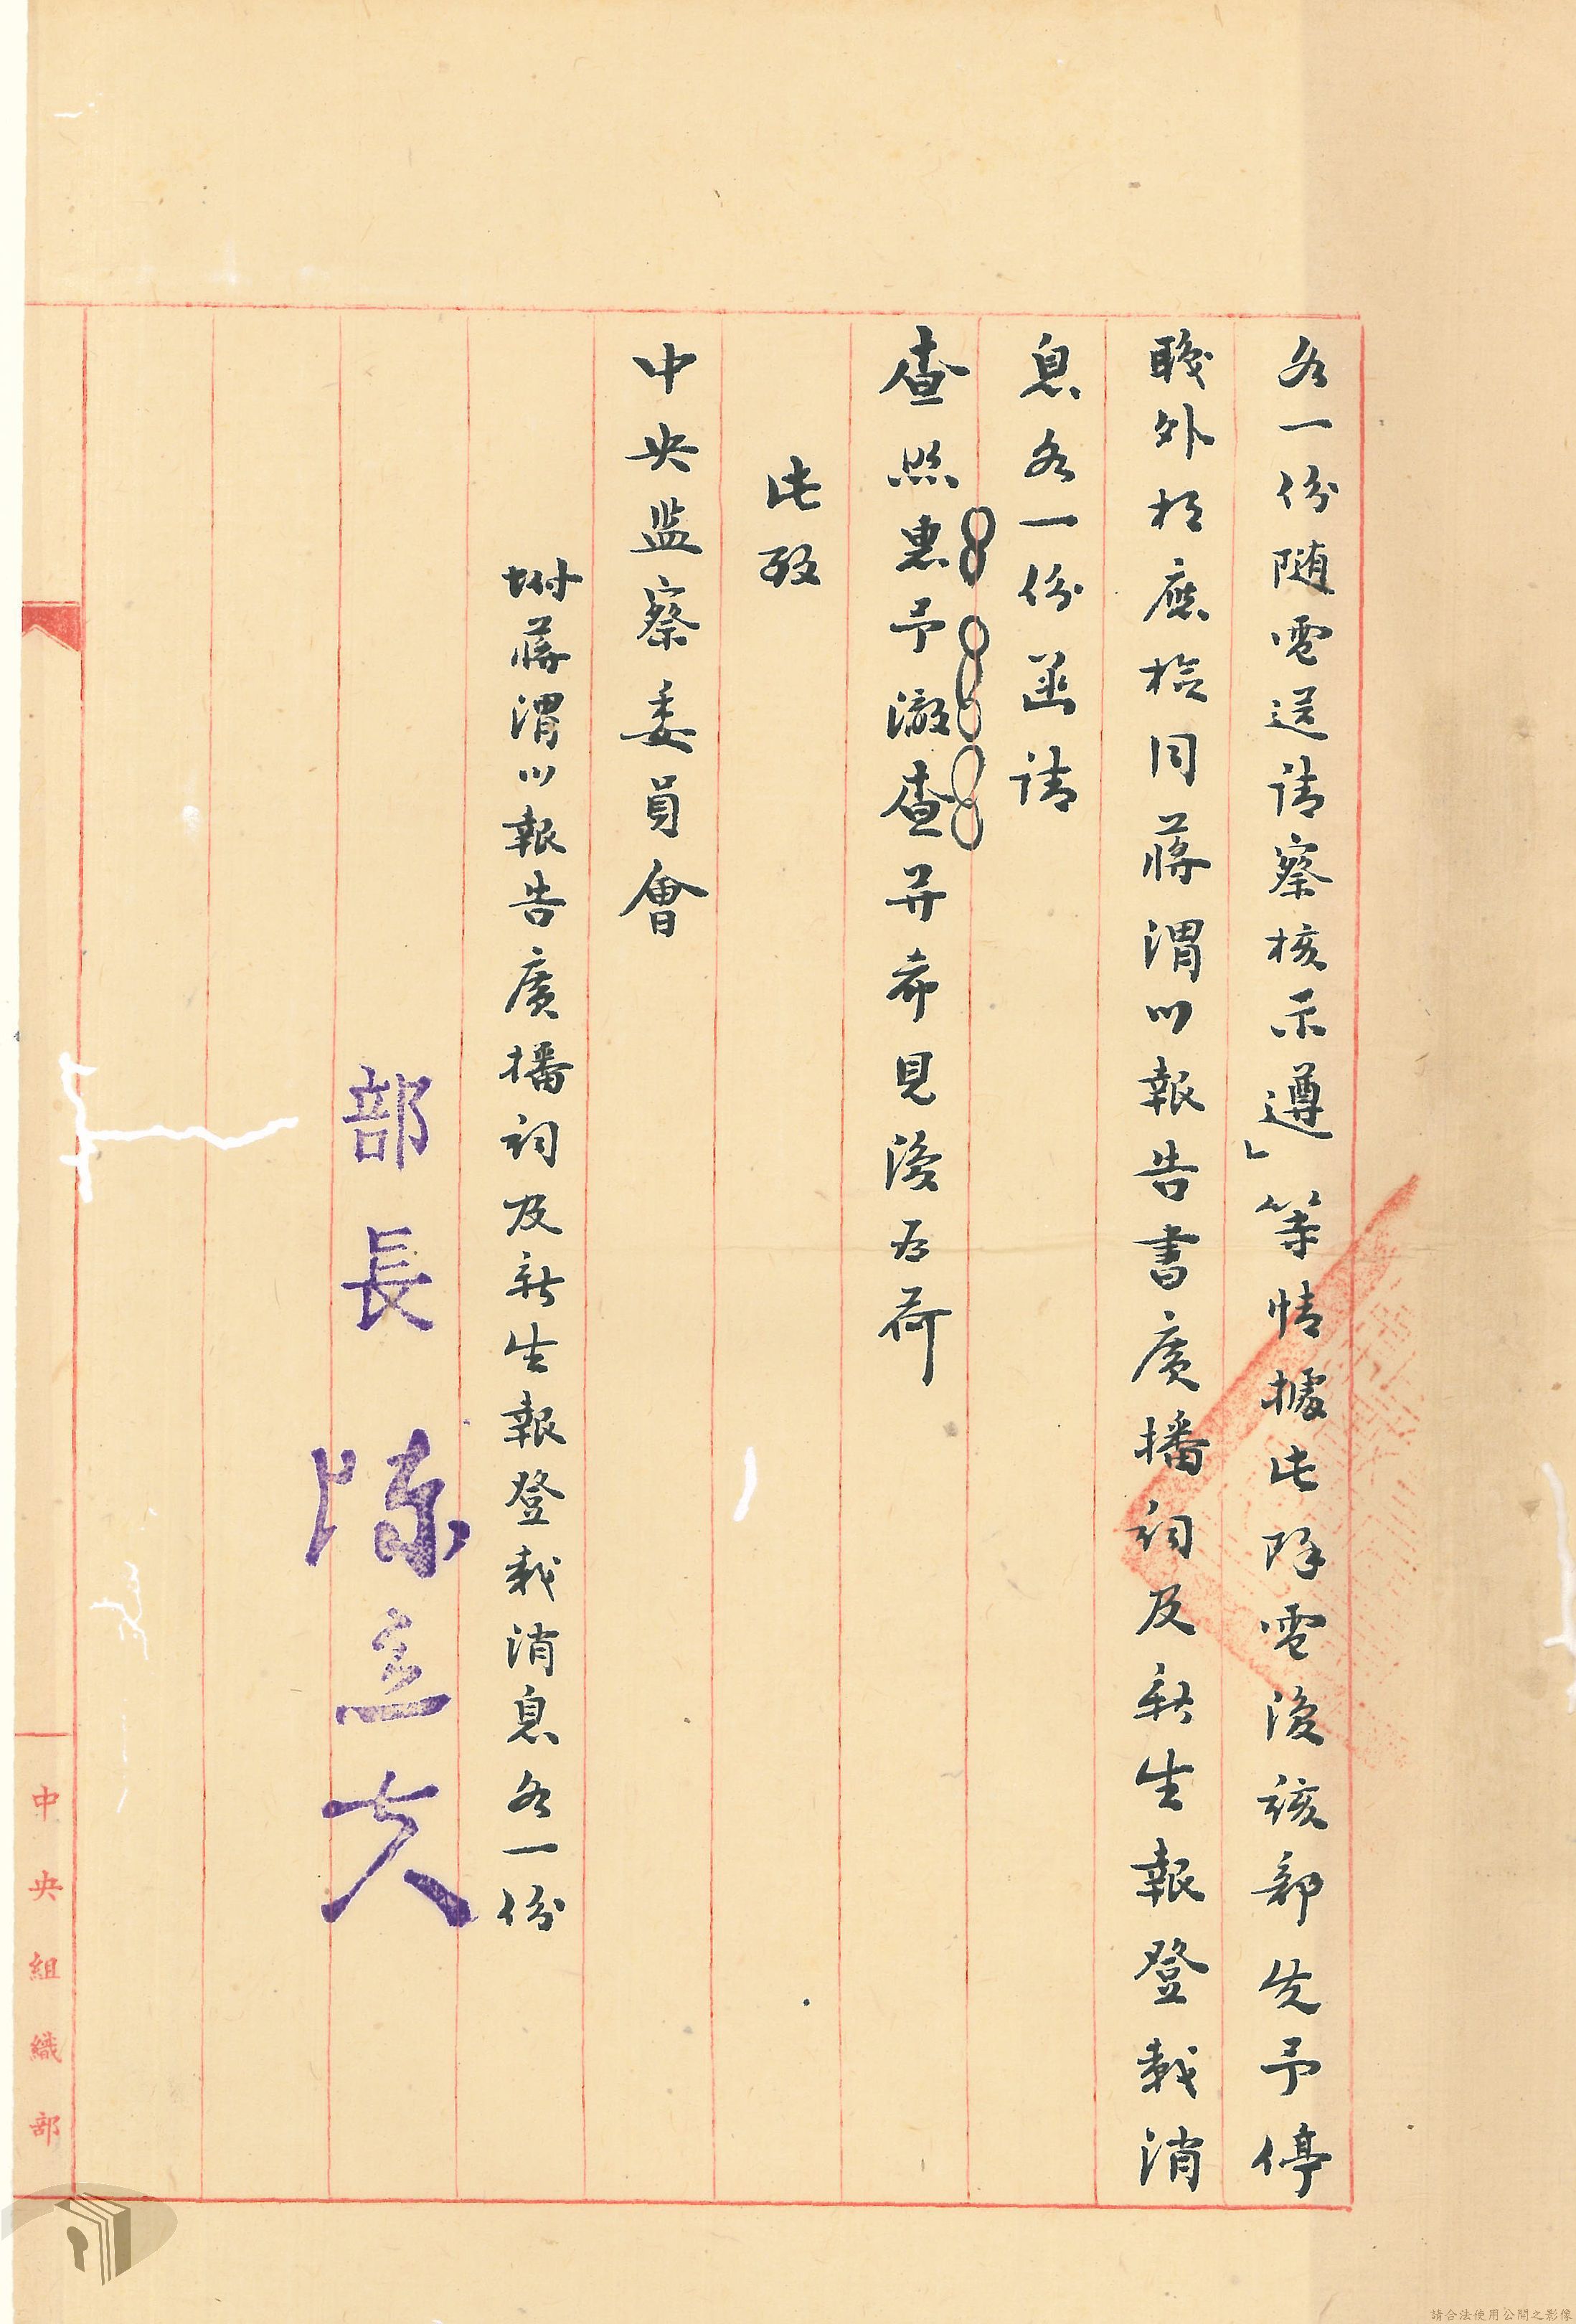 各一份随電送請察核示遵」等情據此除電復該部先予停
職外相應檢同蔣渭川報告書廣播詞及新生報登載消
息各一份函請
查照惠予澈查并希見復為荷
此致
中央监察委員會
坿蔣渭川報告廣播詞及新生報登載消息各一份
部長 陳立夫
中央組織部
請合法使用公開之影像